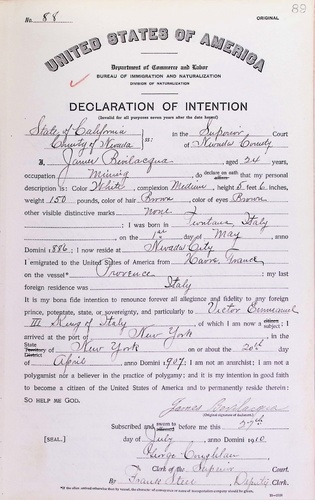 88
No. 88
ORIGINAL
UNITED STATES OF AMERICA
Department of Commerce and Labor
BUREAU OF IMMIGRATION AND NATURALIZATION
DIVISION OF NATURALIZATION
DECLARATION OF INTENTION
(Invalid for all purposes seven years after the date hereof)
State of California
County of Nevada ss: In the Superior Court
of Nevada County
I, James Bevilacqua, aged 24 years,
occupation Mining, do declare on oath affirm that my personal
description is: Color White, complexion Medium, height 5 feet 6 inches,
weight 150 pounds, color of hair Brown, color of eyes Brown
other visible distinctive marks None
; I was born in Italy
on the 1st day of May, anno
Domini 1886; I now reside at Nevada City
I emigrated to the United States of America from Havre, France
on the vessel* Provence; my last
foreign residence was Italy
It is my bona fide intention to renounce forever all allegiance and fidelity to any foreign
prince, potentate, state, or sovereignty, and particularly to Victor Emmanuel
III King of Italy, of which I am now a citizen subject; I
arrived at the port of New York, in the
State Territory District of New York on or about the 20th day
of April, anno Domini 1907; I am not an anarchist; I am not a
polygamist nor a believer in the practice of polygamy; and it is my intention in good faith
to become a citizen of the United States of America and to permanently reside therein:
SO HELP ME GOD.
James Bevilacqua
(Original signature of declarant)
Subscribed and sworn to affirmed before me this 27th
[SEAL.] day of July, anno Domini 1910
George Coughlan
Clerk of the Superior Court.
By Deputy Clerk.
*If the alien arrived otherwise than by vessel, the character of conveyance or name of transportation company should be given.